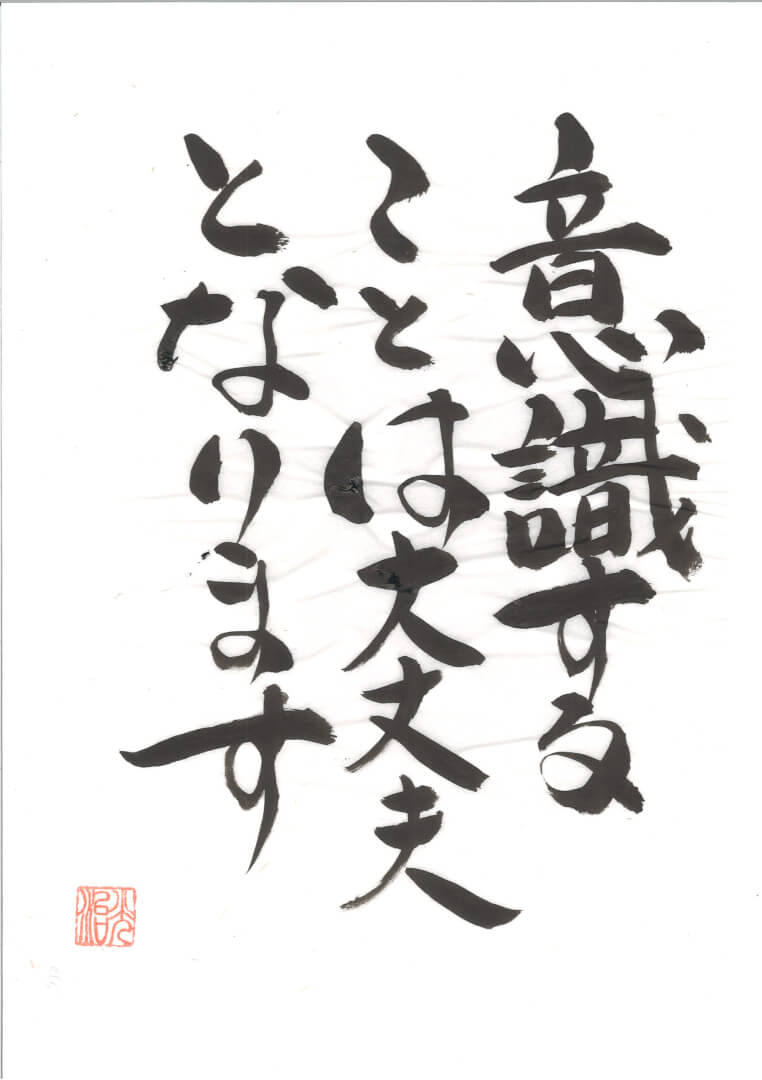 意識する
ことは大丈夫
となります